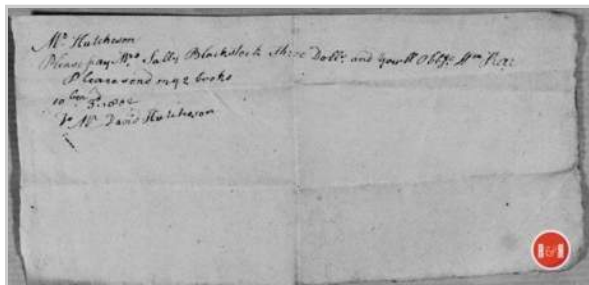 Mr Hutcheson
Please pay Mrs Sally Blackstock three Dolls and you'll Oblge Wm
Please send my 2 books
10 3d 1802
To Mr David Hutcheson